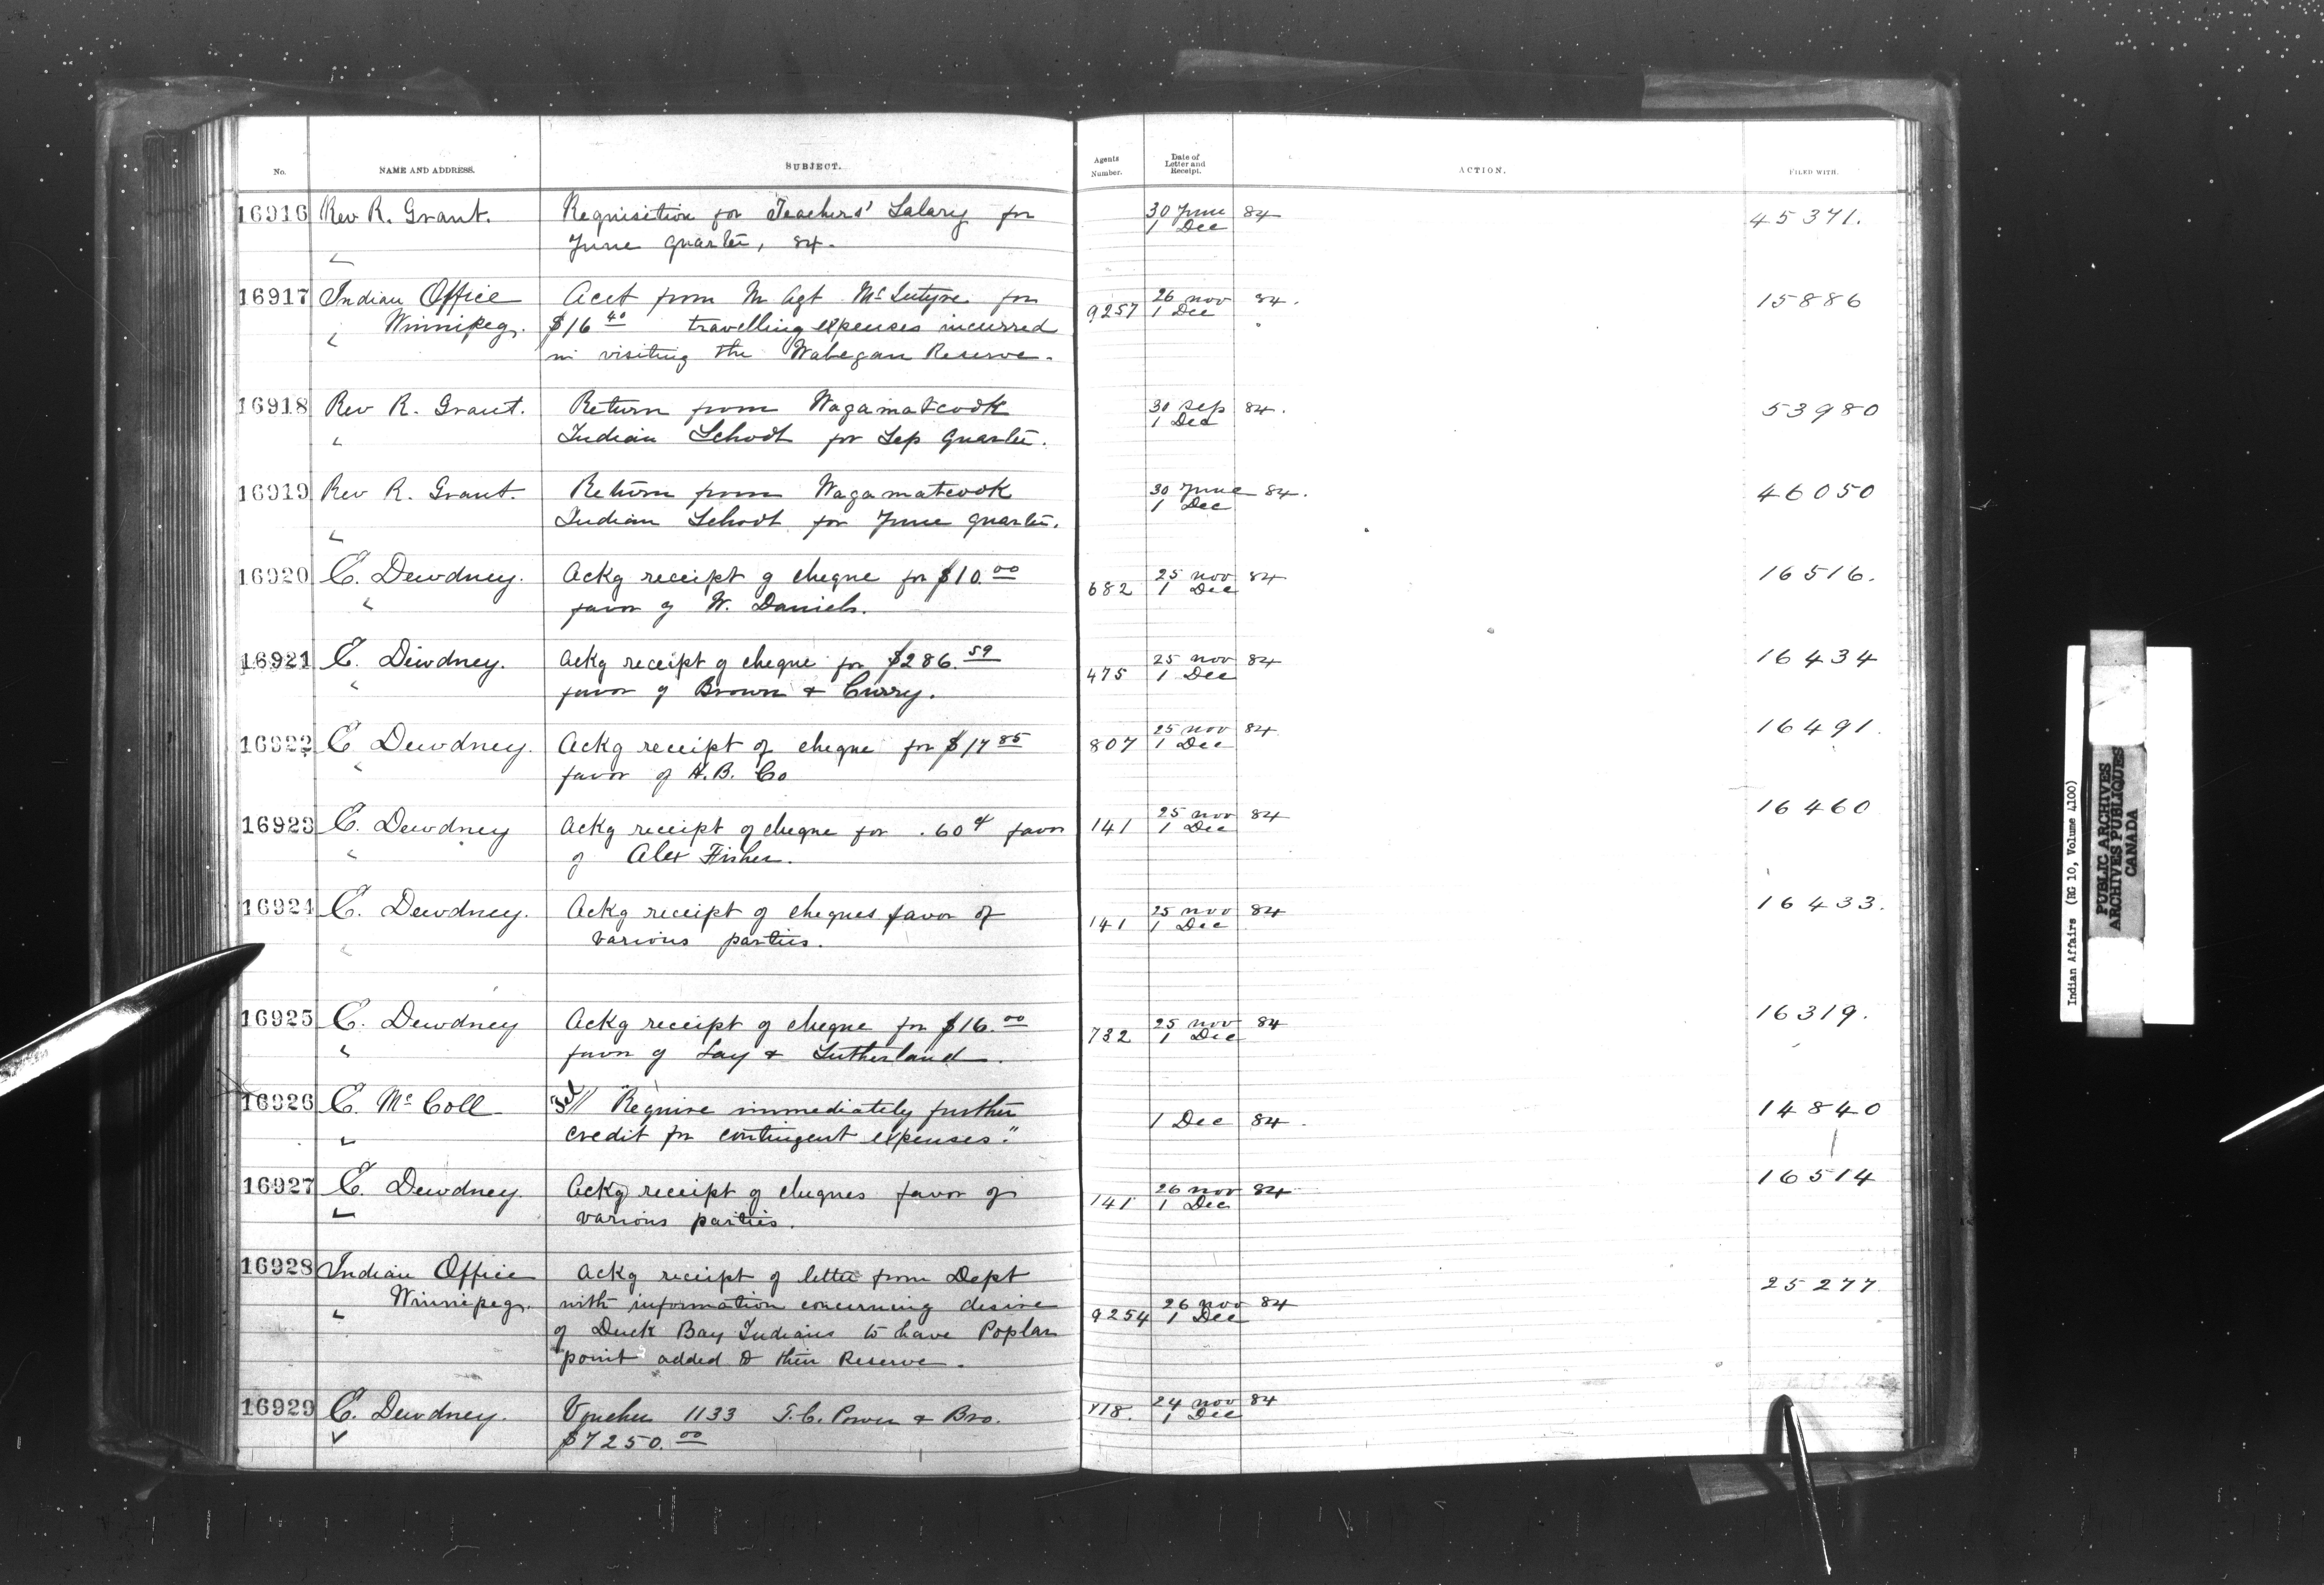 No. NAME AND ADDRESS. SUBJECT. Agents Number. Date of Letter and Receipt. ACTION. FILED WITH.
16916 Rev R. Grant. Requisition for Teachers' Salary for 30 June 84 45371.
June quarter, 84. 1 Dec
16917 Indian Office Acct from In Agt McIntyre for 9257 26 nov 84. 15886
Winnipeg. $16 40 travelling expenses incurred 1 Dec
in visiting the Wabegan Reserve.
16918 Rev R. Grant. Return from Wagamatcook 30 Sep 84. 53980
Indian School for Sep quarter. 1 Dec
16919 Rev R. Grant. Return from Wagamatcook 30 June 84. 46050
Indian School for June quarter. 1 Dec
16920 E. Dewdney. Ackg receipt of cheque for $10.00 682 25 nov 84 16516.
favor of W. Daniels. 1 Dec
16921 E. Dewdney. Ackg receipt of cheque for $286.59 475 25 nov 84 16434
favor of Brown & Curry. 1 Dec
16922 E Dewdney. Ackg receipt of cheque for $17 85 807 25 nov 84 16491.
favor of H.B. Co 1 Dec
16923 E. Dewdney Ackg receipt of cheque for .60¢ favor 141 25 nov 84 16460
of Alex Fisher. 1 Dec
16924 E. Dewdney. Ackg receipt of cheques favor of 141 25 nov 84 16433.
various parties. 1 Dec
16925 E. Dewdney Ackg receipt of cheque for $16.00 732 25 nov 84 16319.
favor of Lay & Sutherland. 1 Dec
16926 E. McColl "Require immediately further 1 Dec 84. 14840
credit for contingent expenses."
16927 E. Dewdney. Ackg receipt of cheques favor of 141 26 nov 84 16514
various parties. 1 Dec
16928 Indian Office Ackg receipt of letter from Dept 25277
Winnipeg. with information concerning desire 9254 26 nov 84
of Duck Bay Indians to have Poplar 1 Dec
point added to their Reserve.
16929 E. Dewdney. Voucher 1133 T.C. Power & Bro. 718. 24 nov 84
$7250.00 1 Dec
Indian Affairs (RG 10, Volume 4100)
PUBLIC ARCHIVES
ARCHIVES PUBLIQUES
CANADA